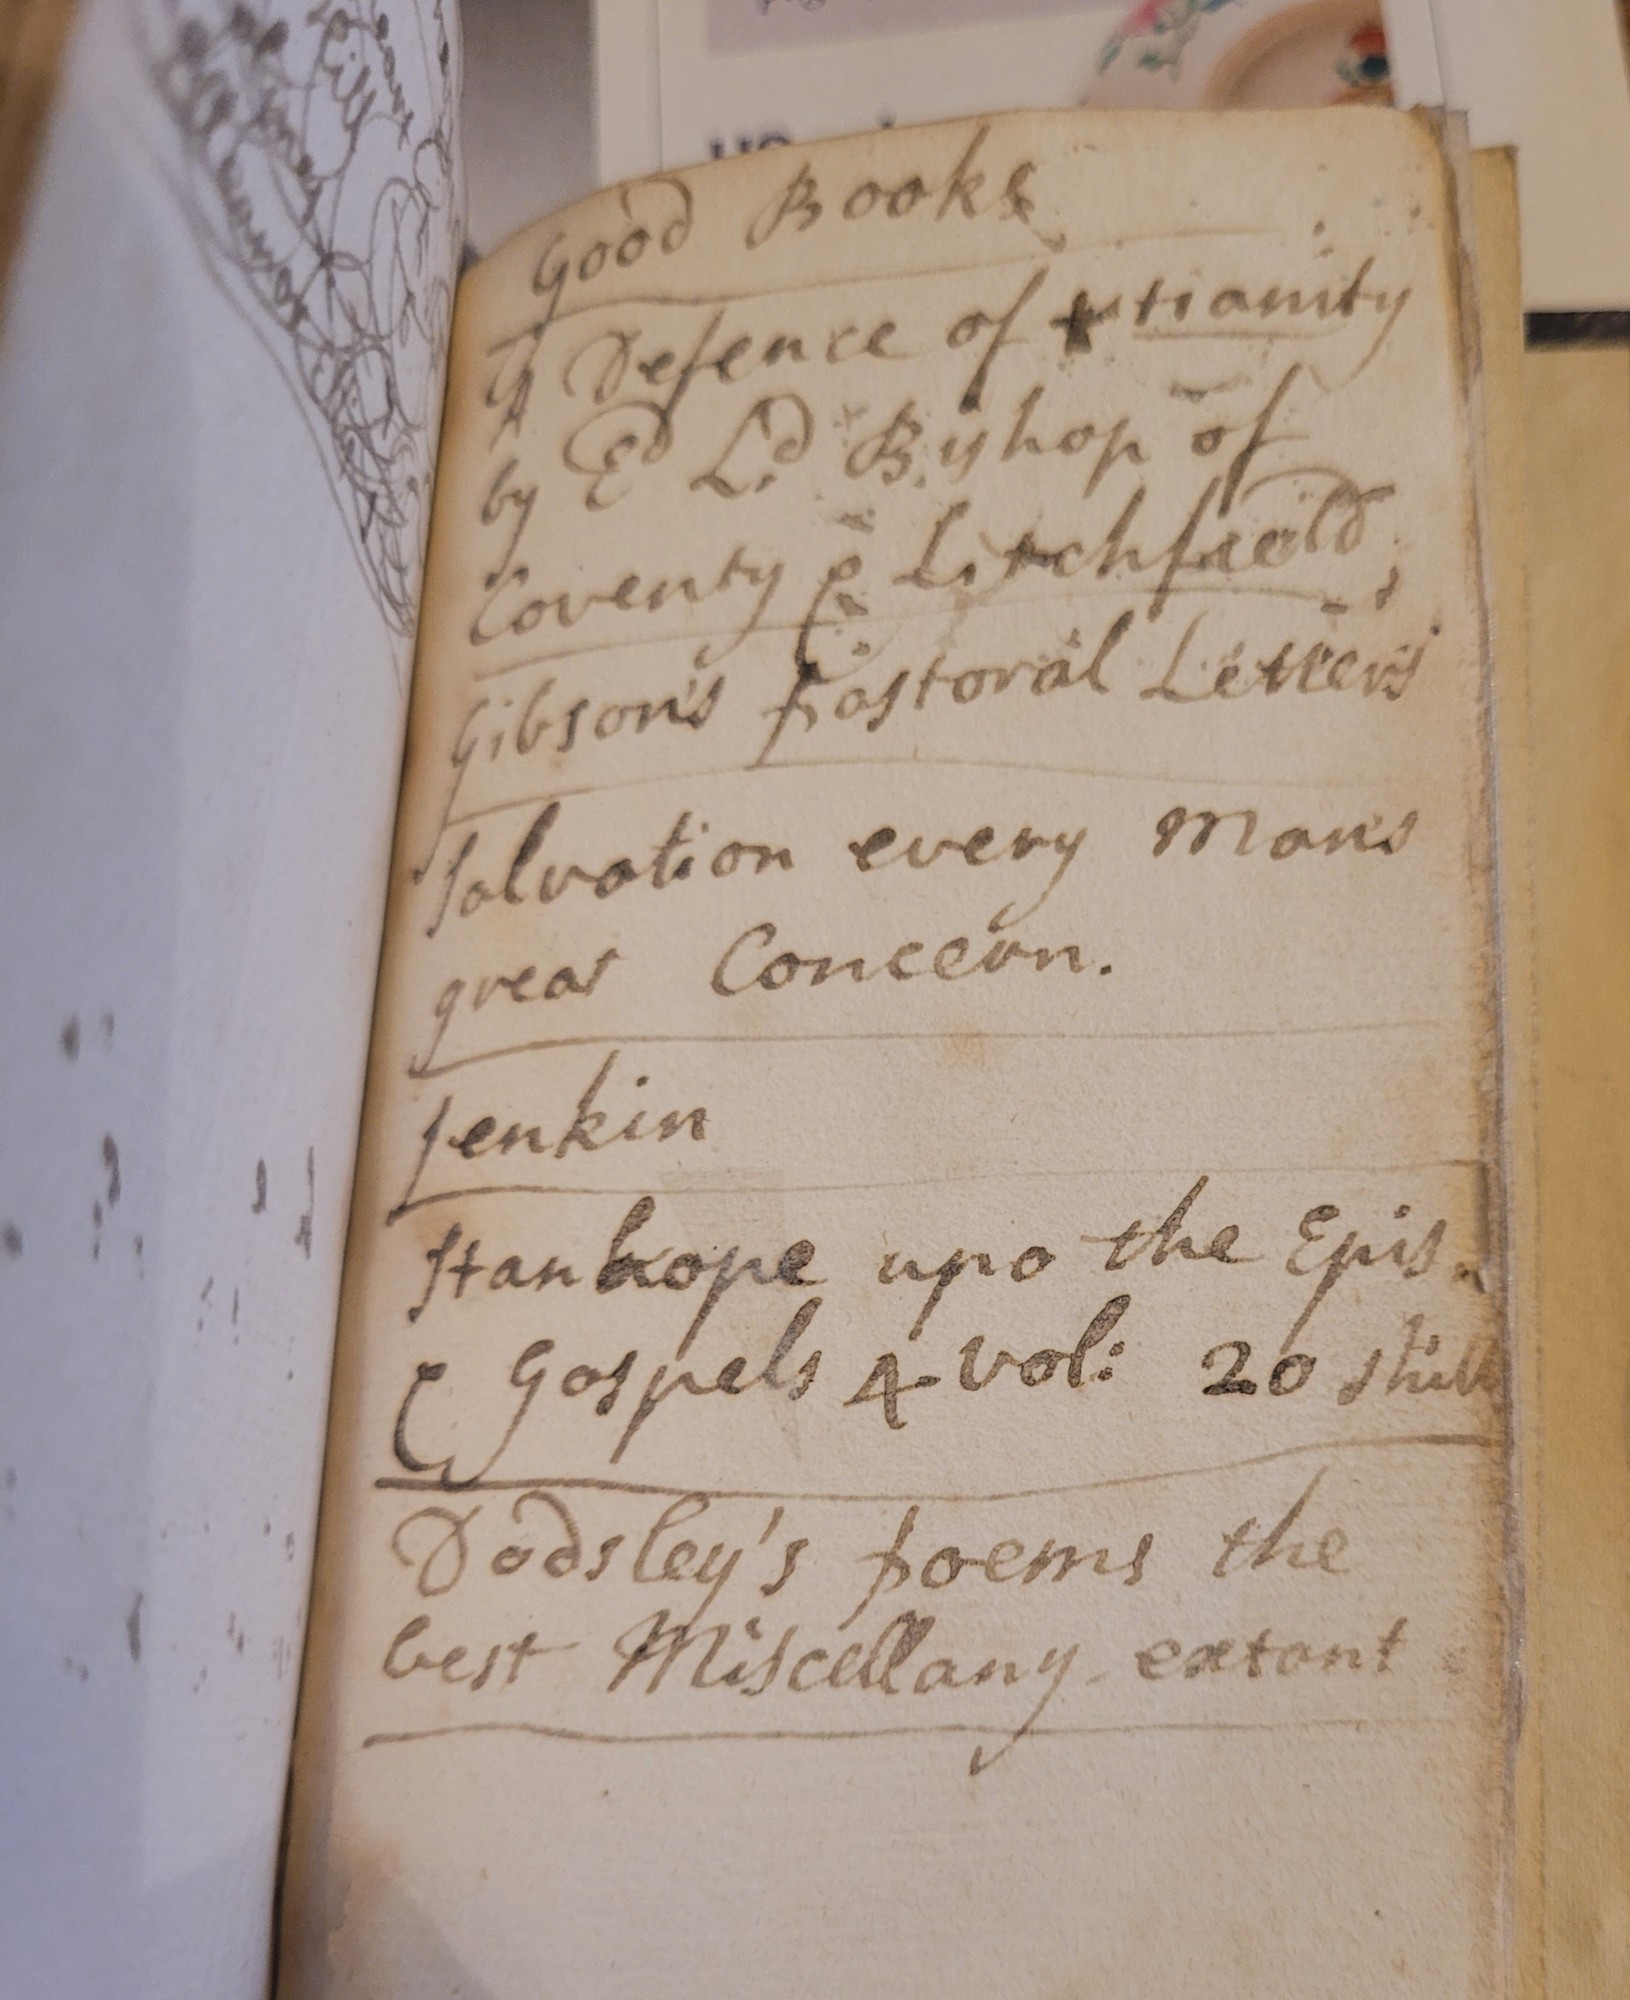 Good Books
A Defence of Xtianity
by Ed Ld Bishop of
Coventy & Litchfield,
Gibson's Pastoral Letters
Salvation every Man's
great Concern.
Jenkin
Stanhope upo the Epis
& Gospels 4 vol: 20 shill
Dodsley's poems the
best Miscellany extant